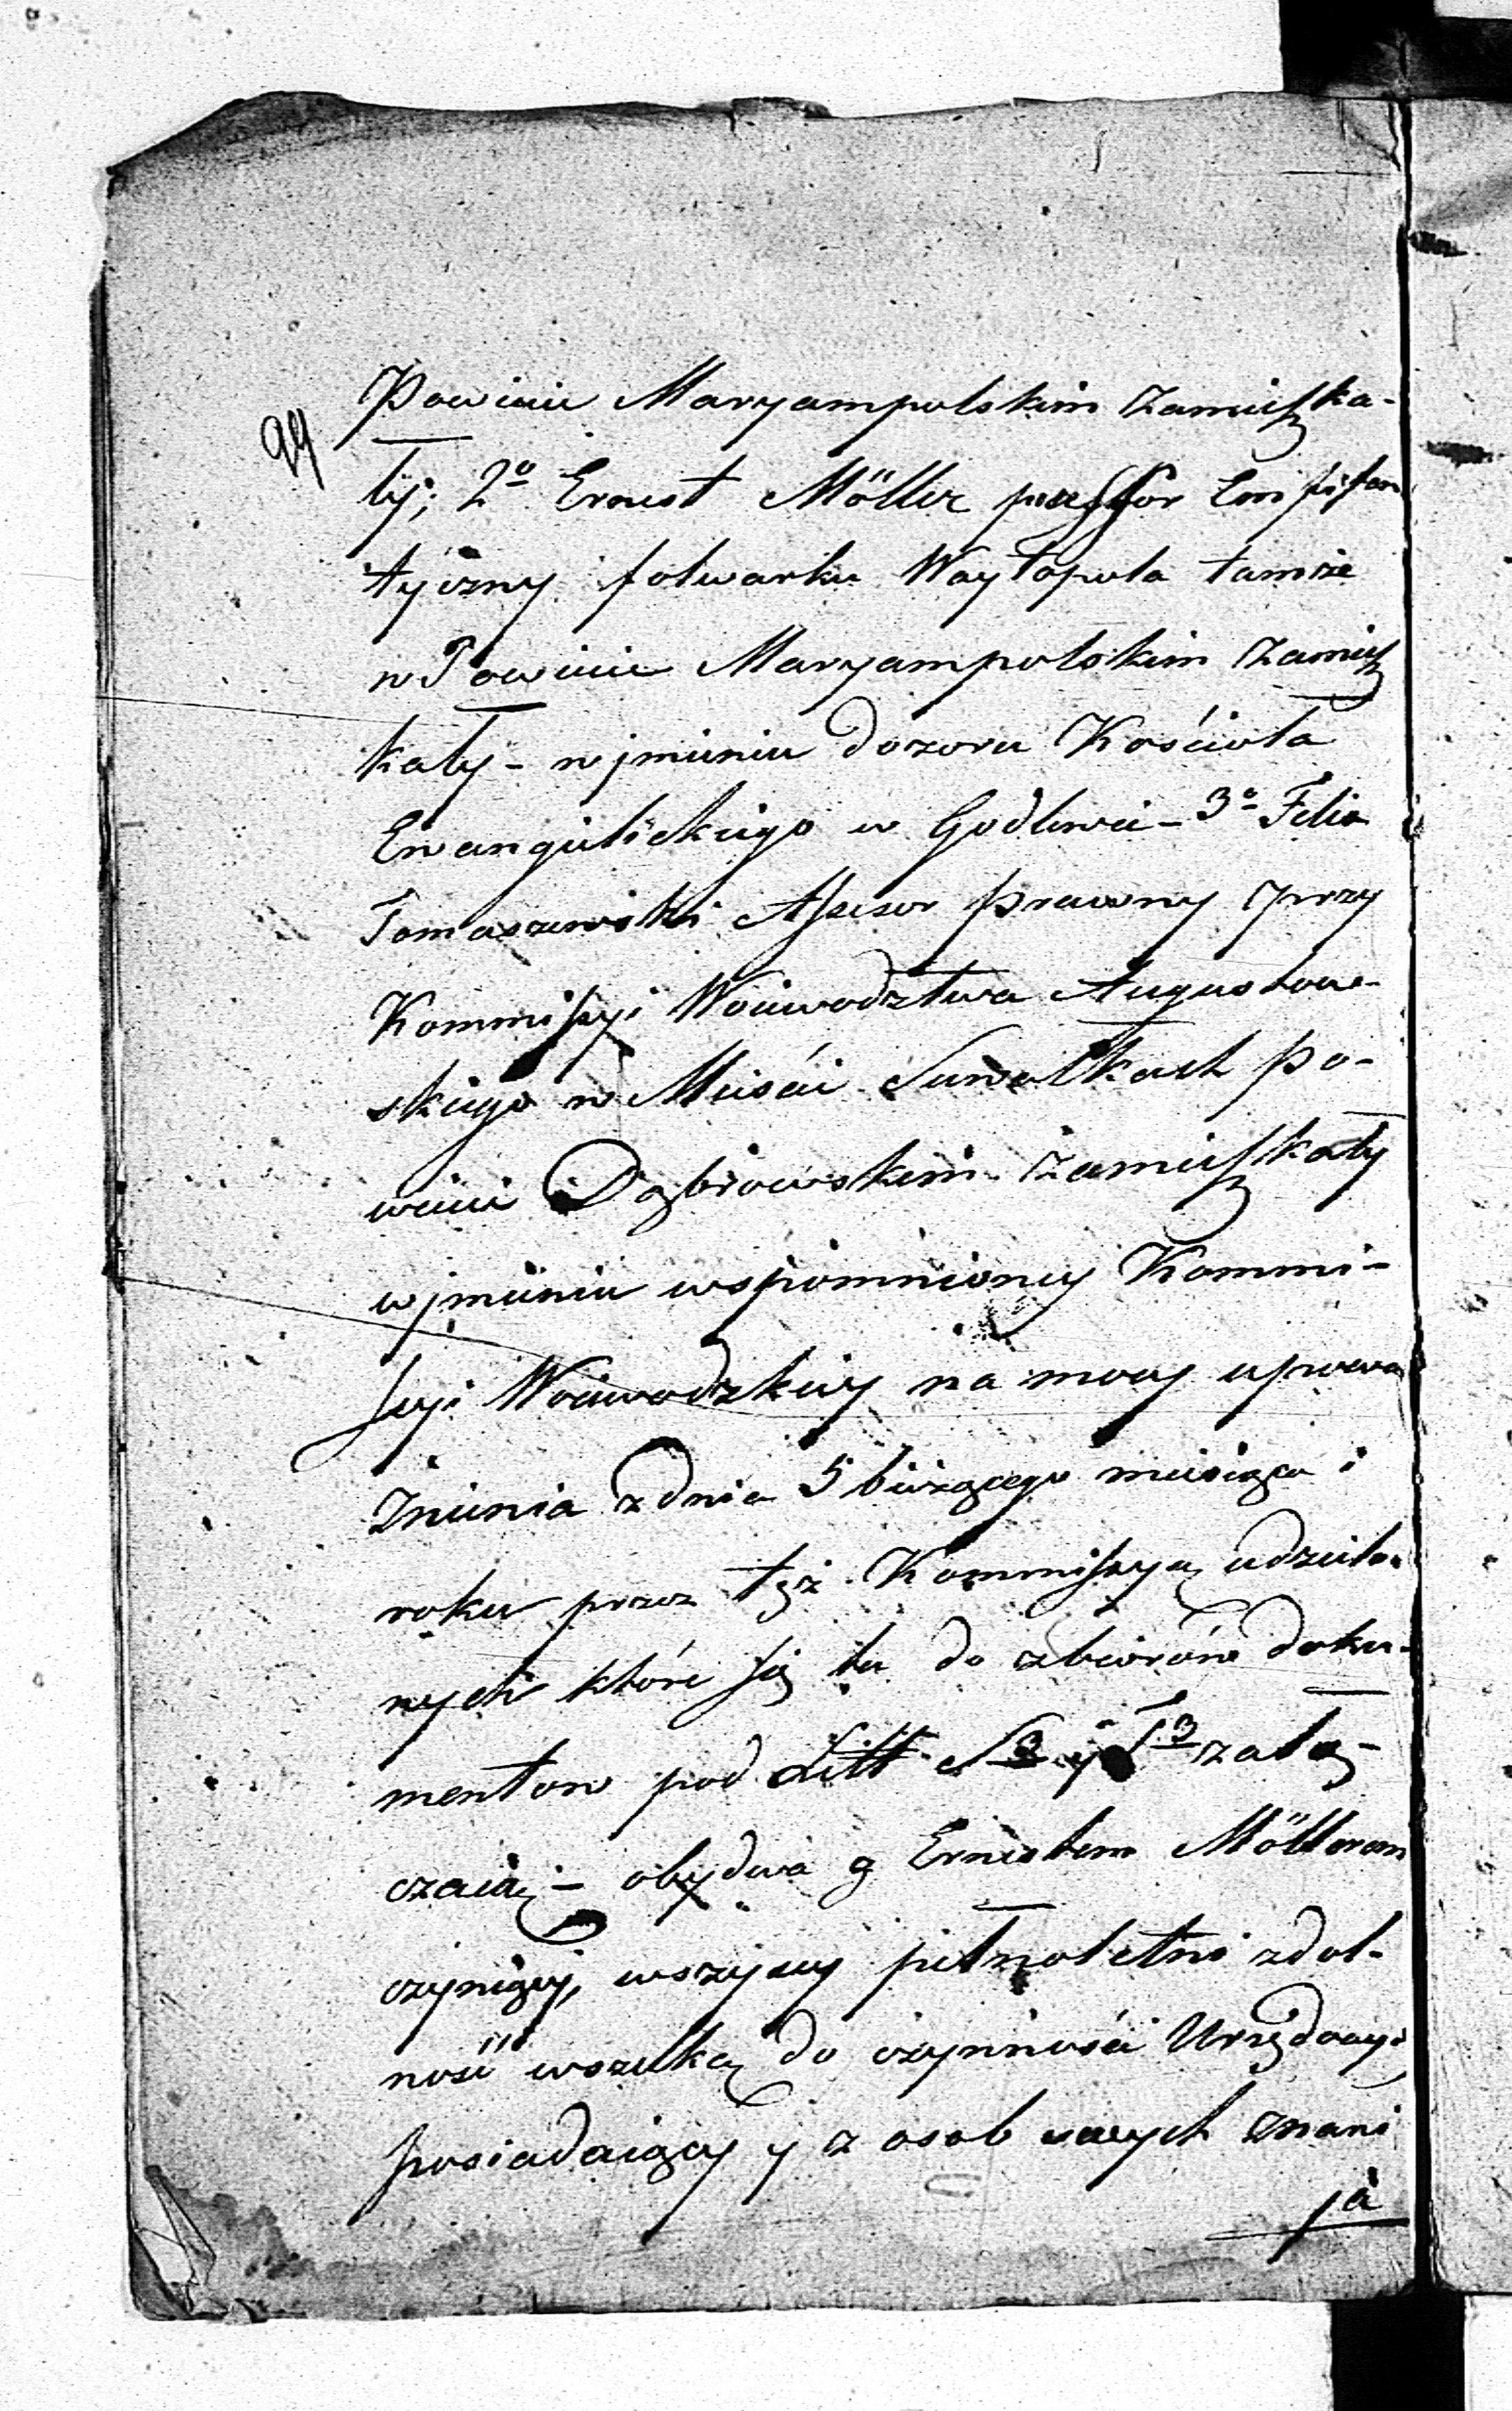 94
Powiecie Maryampolskim zamieszka-
ły; 2o Ernest Möller possessor Emfiteu
tyczny folwarku Waytopola tamże
w Powiecie Maryampolskim zamiesz
kały - w jmieniu dozoru Kościoła
Ewangielickiego w Godlewie - 3o Felix
Tomaszewski Assesor prawny przy
Kommissyi Woiewodztwa Augustow-
skiego w Mieście Suwałkach po-
wiecie Dąbrowskim zamieszkały
w jmieniu wspomnioney Kommi-
ssyi Woiewodzkiey na mocy upowa
żnienia z dnia 5 bieżącego miesiąca i
roku przez tęż Kommissyą udzielo
nych które się tu do zbiorów doku-
mentow pod Litt S3 y T3 załą-
czaią - obydwa z Ernestem Möllerem
czyniący, wszyscy pełnoletni zdol-
ność wszelką do czynności Urzędowych
posiadaiący y z osob swych znani
ja